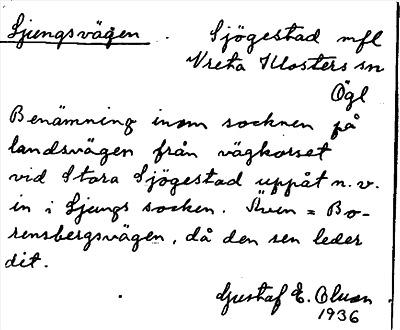 Ljungsvägen. Sjögestad mfl
Vreta Klosters sn
Ögl
Benämning inom socknen på
landsvägen från vägkorset
vid Stora Sjögestad uppåt n. v.
in i Ljungs socken. Även = Bo-
rensbergsvägen, då den sen leder
dit.
Gustaf E. Olsson
1936